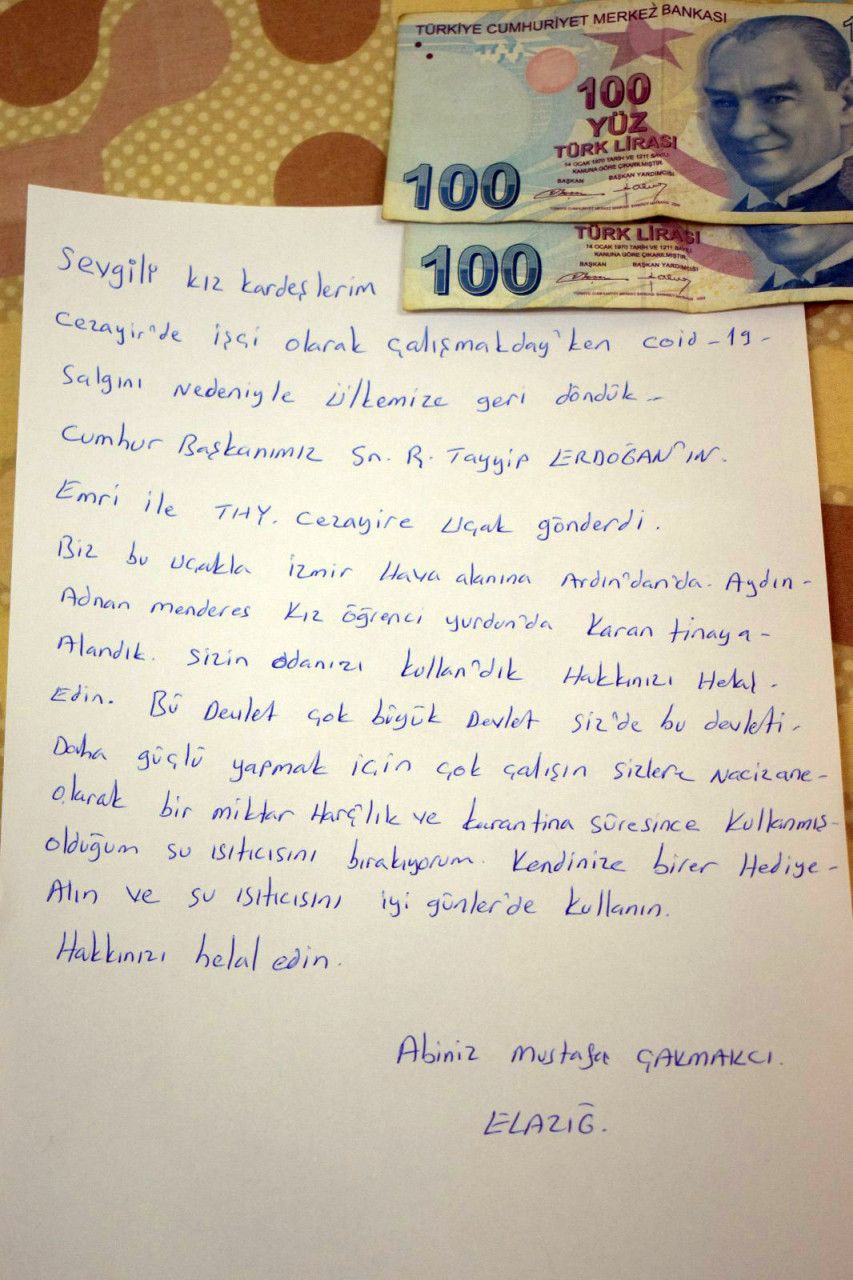 TÜRKİYE CUMHURİYET MERKEZ BANKASI
1
100
YÜZ
TÜRK LİRASI
14 OCAK 1970 TARİH VE 1211 SAYILI
KANUNA GÖRE ÇIKARILMIŞTIR.
BAŞKAN BAŞKAN YARDIMCISI
100
TÜRK LİRASI
14 OCAK 1970 TARİH VE 1211 SAYILI
KANUNA GÖRE ÇIKARILMIŞTIR.
BAŞKAN BAŞKAN YARDIMCISI
100
Sevgili kız kardeşlerim
Cezayir'de işçi olarak çalışmakday'ken coid-19-
Salgını nedeniyle ülkemize geri döndük-
Cumhur Başkanımız Sn. R. Tayyip ERDOĞAN'IN.
Emri ile THY. Cezayire uçak gönderdi.
Biz bu uçakla izmir Hava alanına Ardın'dan'da. Aydın-
Adnan menderes kız öğrenci yurdun'da karan tinaya-
Alandık. Sizin odanızı kullan'dık Hakkınızı Helal-
Edin. Bû Devlet çok büyük Devlet siz'de bu devleti-
Daha güçlü yapmak için çok çalışın sizlere Nacizane-
olarak bir miktar Harçlık ve karantina sûresince kullanmış-
olduğum su ısıtıcısını bırakıyorum. Kendinize birer Hediye-
Alın ve su ısıtıcısını iyi günler'de kullanın.
Hakkınızı helal edin.
Abiniz mustafa ÇAKMAKCI.
ELAZIĞ.